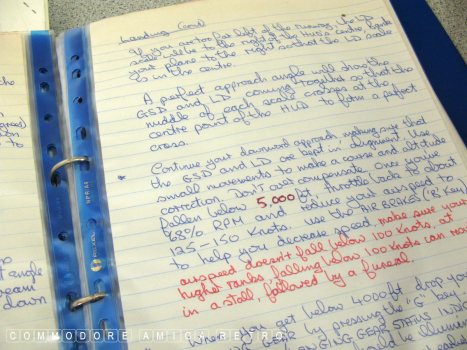 Landing (cont)
If you are too far left of the runway, the LD
scale will be to the right of the HUD's centre,
your plane to the right so that the LD scale
is in the centre.
A perfect approach angle will show the
GSD and LD coming together so that the
middle of each scale crosses at the
centre point of the HUD to form a perfect
cross.
Continue your downward approach making sure that
the GSD and LD are kept in alignment. Use
small movements to make a course and altitude
correction. Don't over compensate. Once you've
fallen below 5,000 ft, throttle back to about
68% RPM and reduce your airspeed to
125-150 Knots. use the AIR BRAKES ('B' Key)
to help you decrease speed, make sure your
airspeed doesn't fall below 100 Knots, at
higher ranks falling below 100 Knots can
in a stall, followed by a funeral.
When you get below 4000 ft drop your
GEAR by pressing the "G" key
GEAR STATUS
COMMODORE AMIGA RETRO